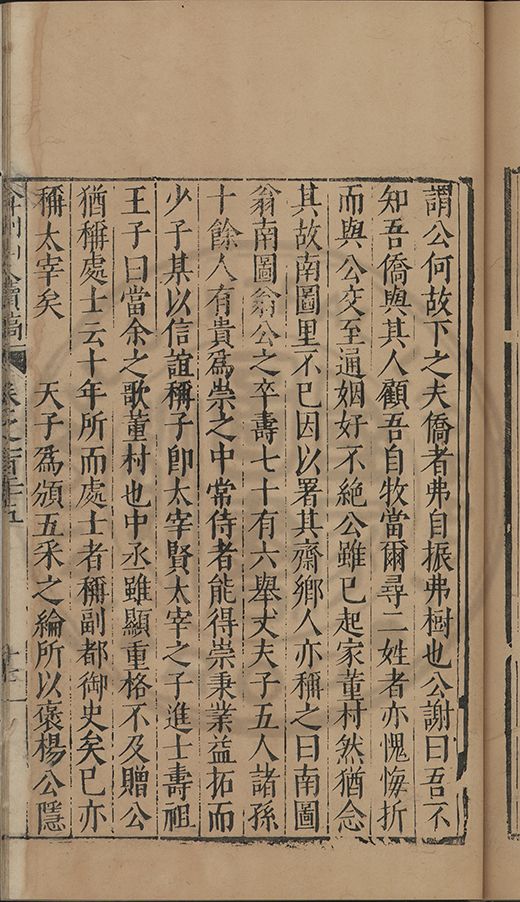 謂公何故下之夫僑者弗自振弗樹也公謝曰吾不
知吾僑與其人顧吾自牧當爾尋二姓者亦愧悔折
而與公交至通姻好不絶公雖已起家董村然猶念
其故南圖里不已因以署其齋鄉人亦稱之曰南圖
翁南圖翁公之卒壽七十有六舉丈夫子五人諸孫
十餘人有貴爲崇之中常侍者能得崇秉業益拓而
少子某以信誼稱子卽太宰賢太宰之子進士壽祖
王子曰當余之歌董村也中丞雖顯重格不及贈公
猶稱處士云十年所而處士者稱副都御史矣已亦
稱太宰矣　天子爲頒五采之綸所以褒楊公隱
續稿
卷之一百
五